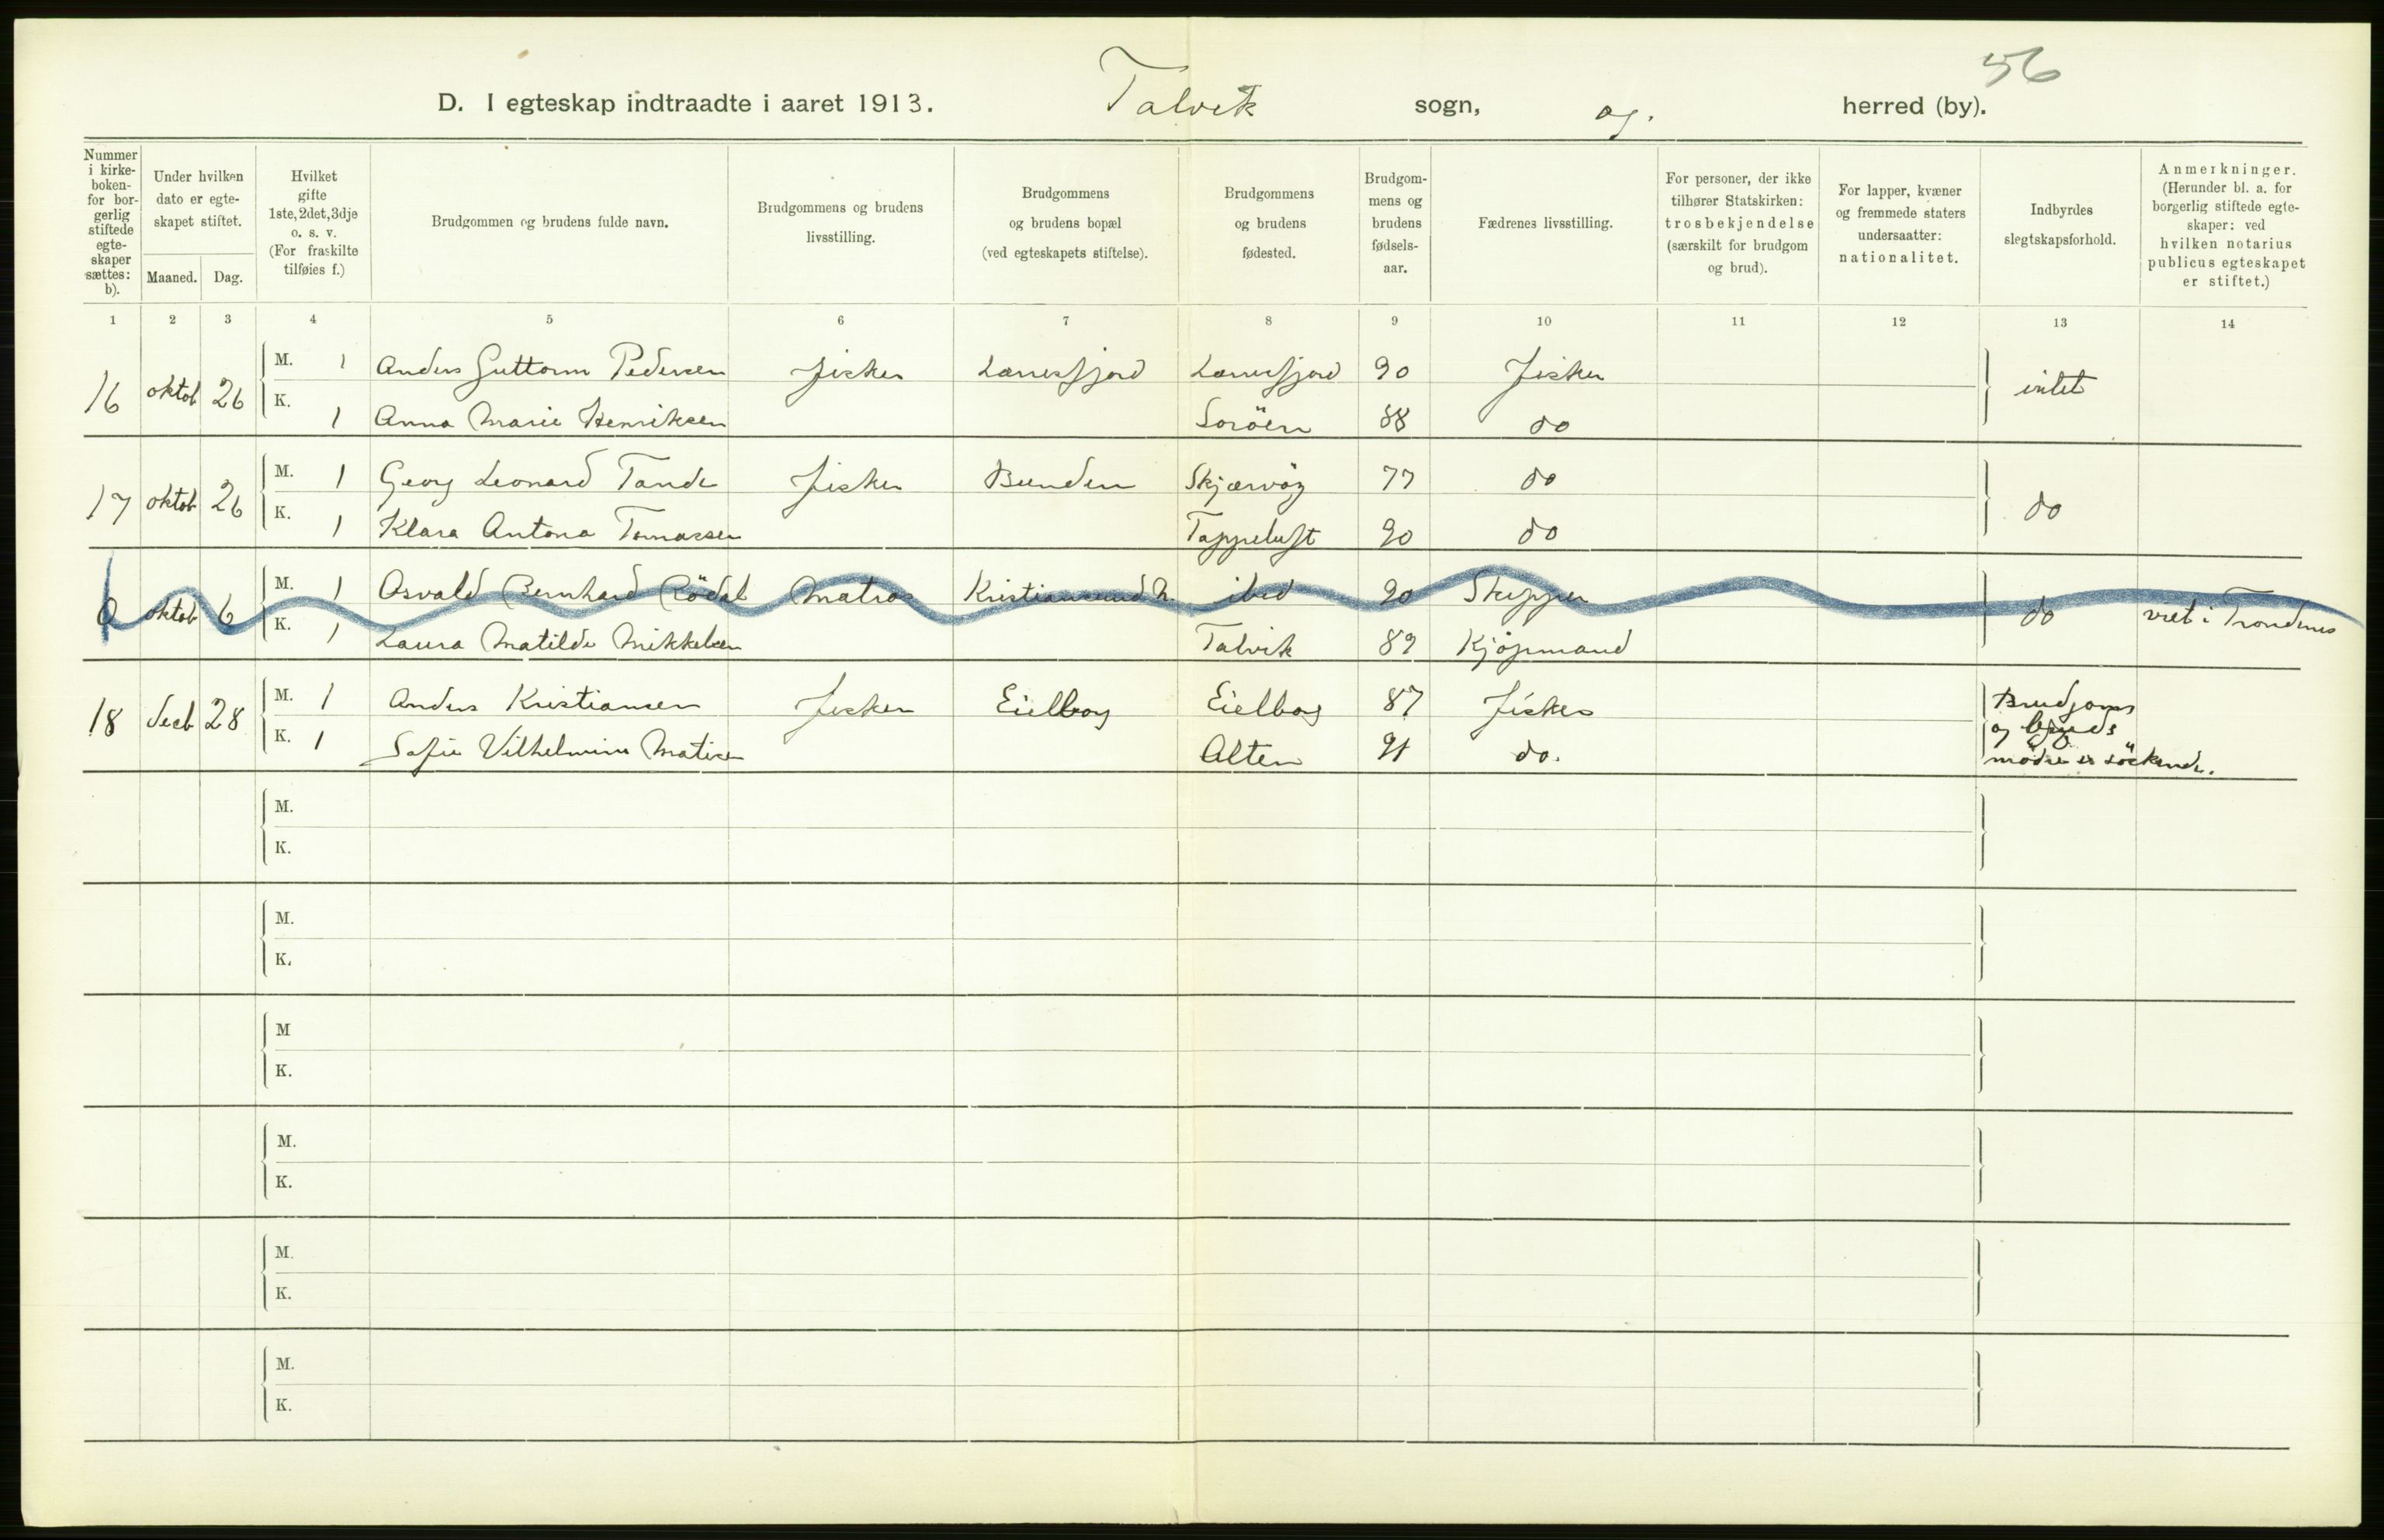 56
D. I egteskap indtraadte i aaret 1913. Talvik sogn, og. herred (by).
Nummer i kirke-boken- for bor-gerlig stiftede egte-skaper sættes: b).
Under hvilken dato er egte-skapet stiftet.
Maaned. Dag.
Hvilket gifte 1ste, 2det, 3dje o. s. v. (For fraskilte tilføies f.)
Brudgommen og brudens fulde navn.
Brudgommens og brudens livsstilling.
Brudgommens og brudens bopæl (ved egteskapets stiftelse).
Brudgommens og brudens fødested.
Brudgom-mens og brudens fødsels-aar.
Fædrenes livsstilling.
For personer, der ikke tilhører Statskirken: trosbekjendelse (særskilt for brudgom og brud).
For lapper, kvæner og fremmede staters undersaatter: nationalitet.
Indbyrdes slegtskapsforhold.
Anmerkninger. (Herunder bl. a. for borgerlig stiftede egte-skaper: ved hvilken notarius publicus egteskapet er stiftet.)
1 2 3 4 5 6 7 8 9 10 11 12 13 14
16 oktob 26 M. 1 Anders Guttorm Pedersen Fisker Lærresfjord Lærresfjord 90 Fisker intet
K. 1 Anna Marie Henriksen Soröen 88 do
17 oktob 26 M. 1 Georg Leonard Tande Fisker Bunden Skjærvöy 77 do do
K. 1 Klara Antona Tomassen Tappeluft 90 do
0 oktob 6 M. 1 Osvald Bernhard Rödal Matros Kristiansund N. ibid 90 Skipper do viet i Trondenes
K. 1 Laura Matilde Mikkelsen Talvik 89 Kjøpmand
18 decb 28 M. 1 Anders Kristiansen Fisker Eielbog Eielbog 87 Fisker Brudgoms
og bruds
K. 1 Sofie Vilhelmine Matisen Alten 91 do. mödre er söskende.
M.
K.
M.
K.
M
K.
M.
K.
M.
K.
M.
K.